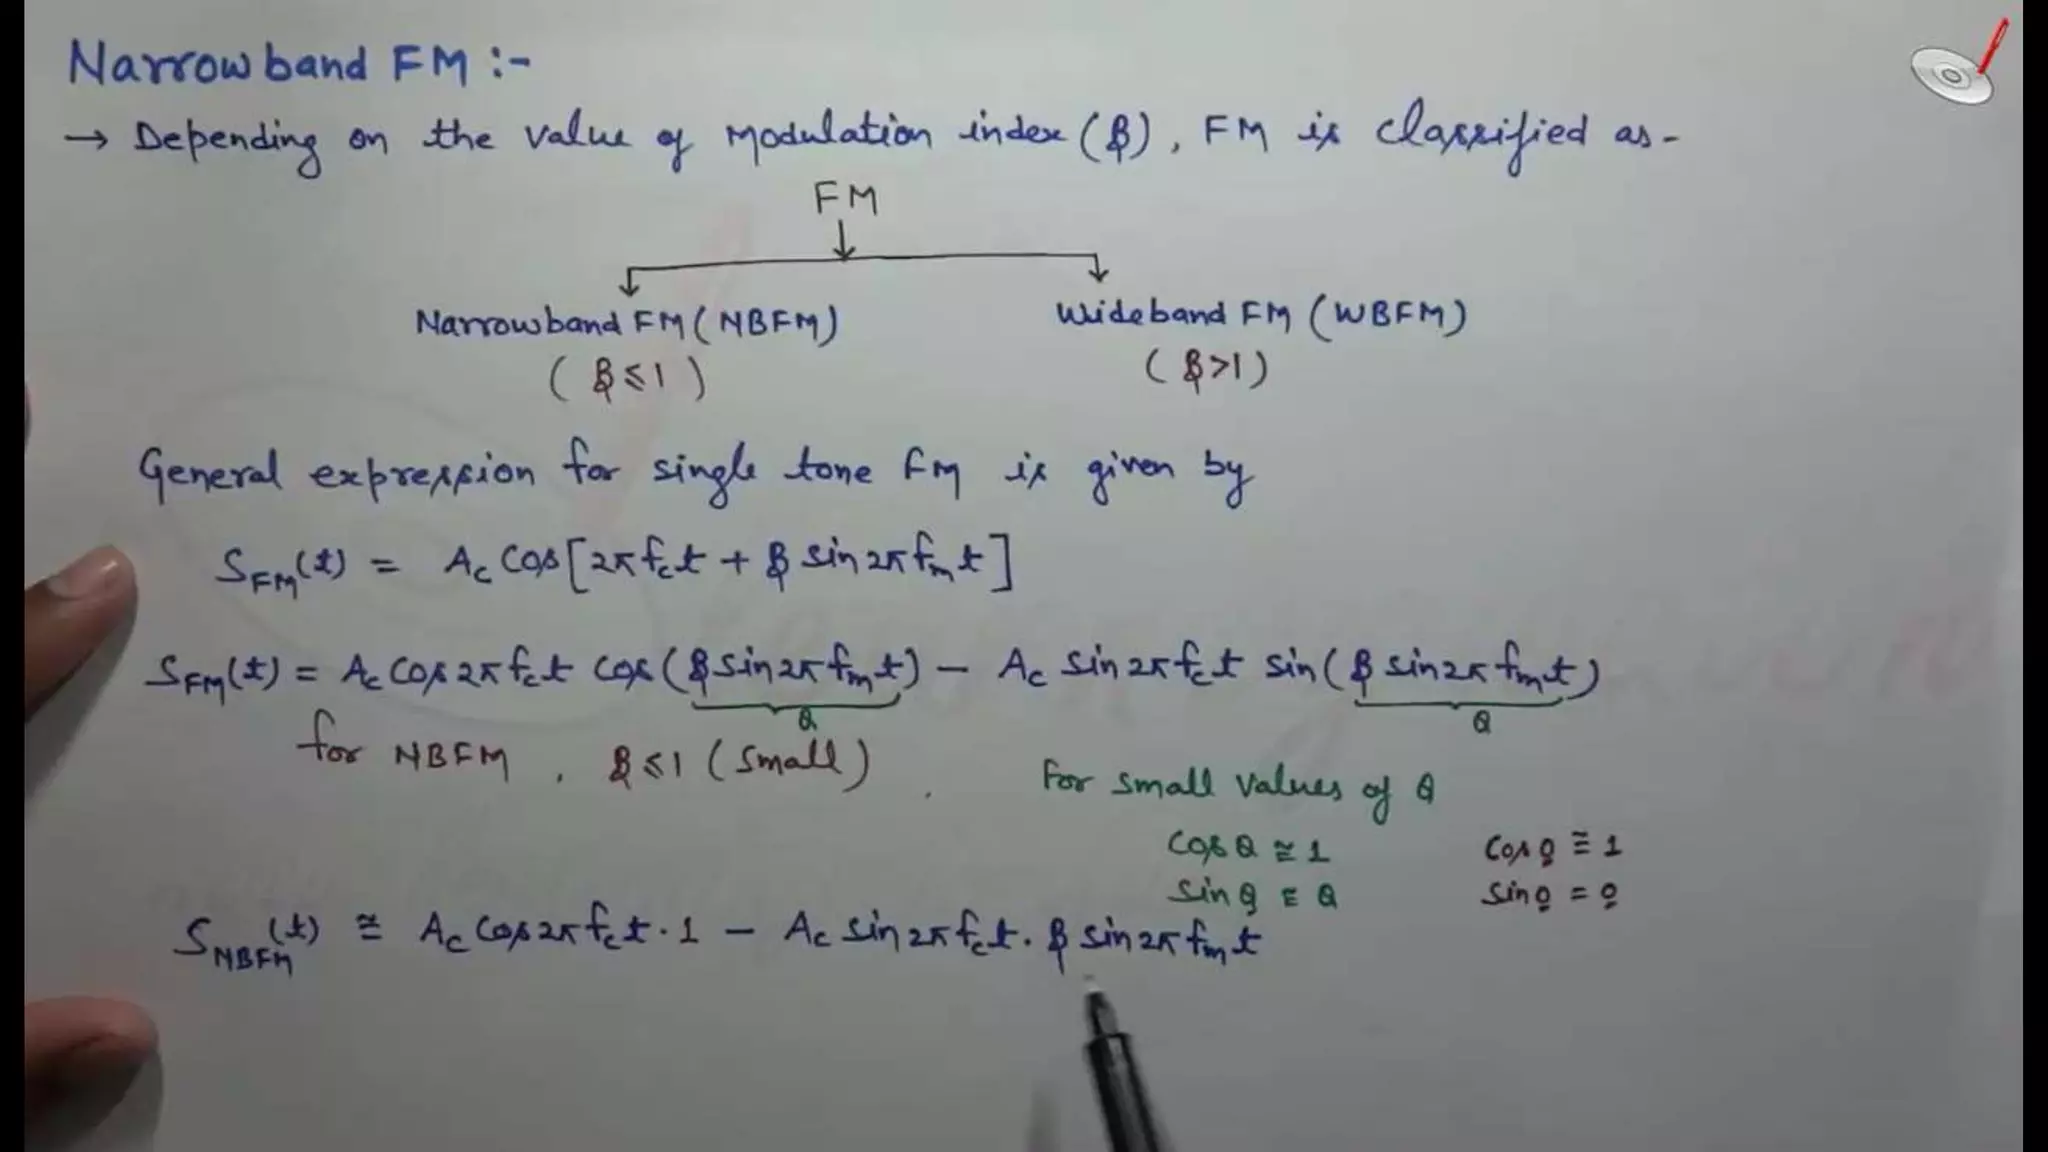 Narrowband FM :-
→ Depending on the value of modulation index (β), FM is classified as -
FM
Narrowband FM (NBFM) Wideband FM (WBFM)
(β ≤ 1) (β > 1)
General expression for single tone FM is given by
S_FM(t) = Ac Cos[2π fc t + β sin 2π fm t]
S_FM(t) = Ac Cos 2π fc t Cos (β sin 2π fm t) - Ac sin 2π fc t sin (β sin 2π fm t)
θ θ
for NBFM , β ≤ 1 (small)
For small values of θ
Cos θ ≅ 1 Cos θ ≅ 1
Sin θ ≅ θ Sin θ = θ
S_NBFM(t) ≅ Ac Cos 2π fc t · 1 - Ac sin 2π fc t · β sin 2π fm t